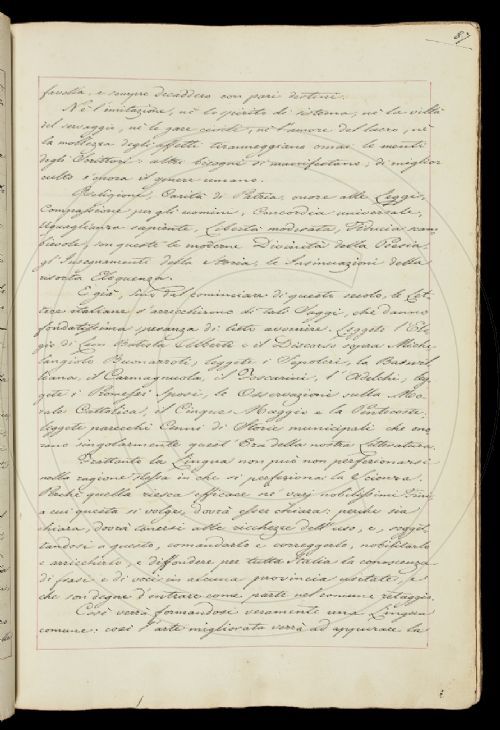 87
favella, e sempre decaddero con pari destini.
Nè l'imitazione, nè lo spirito di sistema, nè la viltà
del servaggio, nè le gare civili, nè l'amore del lucro, nè
la mollezza degli affetti tiranneggiano omai le menti
degli Scrittori: altri bisogni si manifestano, di miglior
culto s'onora il genere umano.
Religione, Carità di Patria, onore alle Leggi,
Compassione per gli uomini, Concordia universale,
Uguaglianza sapiente, Libertà moderata, Fiducia scam
bievole, son queste le moderne Divinità della Poesia,
gl'Insegnamenti della Storia, le Insinuazioni della
risorta Eloquenza.
E già, sino dal cominciare di questo secolo, le Let-
tere italiane s'arricchirono di tali Saggi, che danno
fondatissima speranza di lieto avvenire. Leggete l'Elo
gio di Leon Batista Alberti e il Discorso sopra Miche
langiolo Buonarroti; leggete i Sepolcri, la Basvil
liana, il Carmagnola, il Foscarini, l'Adelchi; leg
gete i Promessi Sposi, le Osservazioni sulla Mo
rale Cattolica, il Cinque Maggio e la Pentecoste;
leggete parecchi Cenni di Storie municipali che ono
rano singolarmente quest'Era della nostra Letteratura.
Frattanto la Lingua non può non perfezionarsi
nella ragione stessa in che si perfeziona la Scienza.
Perchè quella riesca efficace ne' varj nobilissimi fini
a cui questa si volge, dovrà esser chiara: perchè sia
chiara, dovrà tenersi alle ricchezze dell'uso, e, sogget
tandosi a questo, comandarlo e correggerlo, nobilitarlo
e arricchirlo, e diffondere per tutta Italia la conoscenza
di frasi e di voci in alcuna provincia usitate, e
che son degne d'entrare come parte nel comune retaggio.
Così verrà formandosi veramente una Lingua
comune: così l'arte migliorata verrà ad appurare la